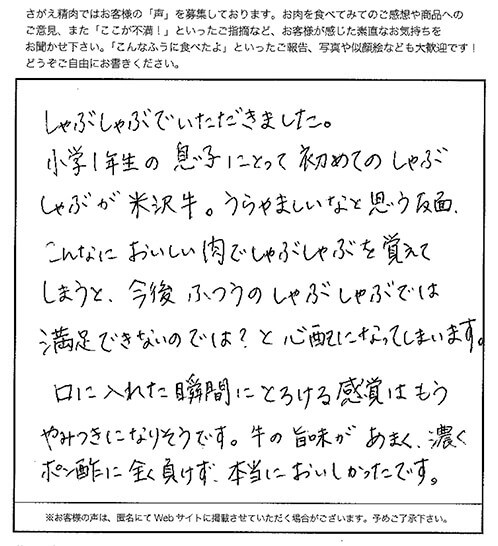 さがえ精肉ではお客様の「声」を募集しております。お肉を食べてみてのご感想や商品への
ご意見、また「ここが不満！」といったご指摘など、お客様が感じた素直なお気持ちを
お聞かせ下さい。「こんなふうに食べたよ」といったご報告、写真や似顔絵なども大歓迎です！
どうぞご自由にお書きください。
しゃぶしゃぶでいただきました。
小学1年生の息子にとって初めてのしゃぶ
しゃぶが米沢牛。うらやましいなと思う反面、
こんなにおいしい肉でしゃぶしゃぶを覚えて
しまうと、今後ふつうのしゃぶしゃぶでは
満足できないのでは？と心配になってしまいます。
口に入れた瞬間にとろける感覚はもう
やみつきになりそうです。牛の旨味があまく、濃く
ポン酢に全く負けず、本当においしかったです。
※お客様の声は、匿名にてWebサイトに掲載させていただく場合がございます。予めご了承下さい。